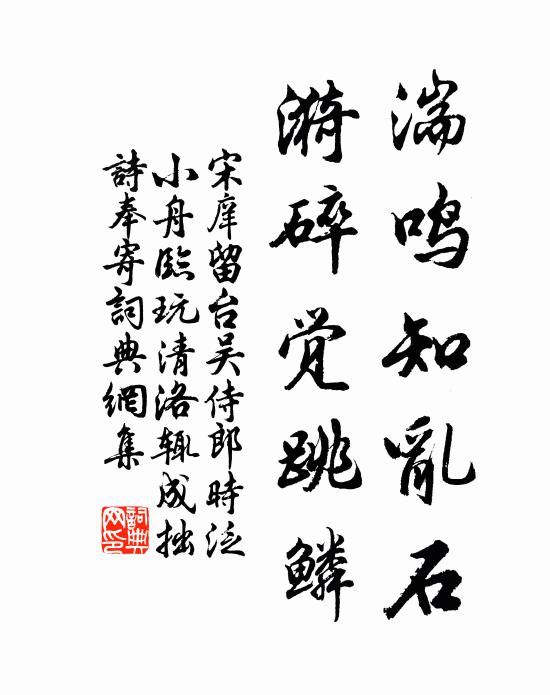 湍鸣知亂石
漪碎觉跳鳞
宋庠留台吴侍郎時泛
小舟臨玩清洛辄成拙
詩奉寄詞典網集
詞典网印